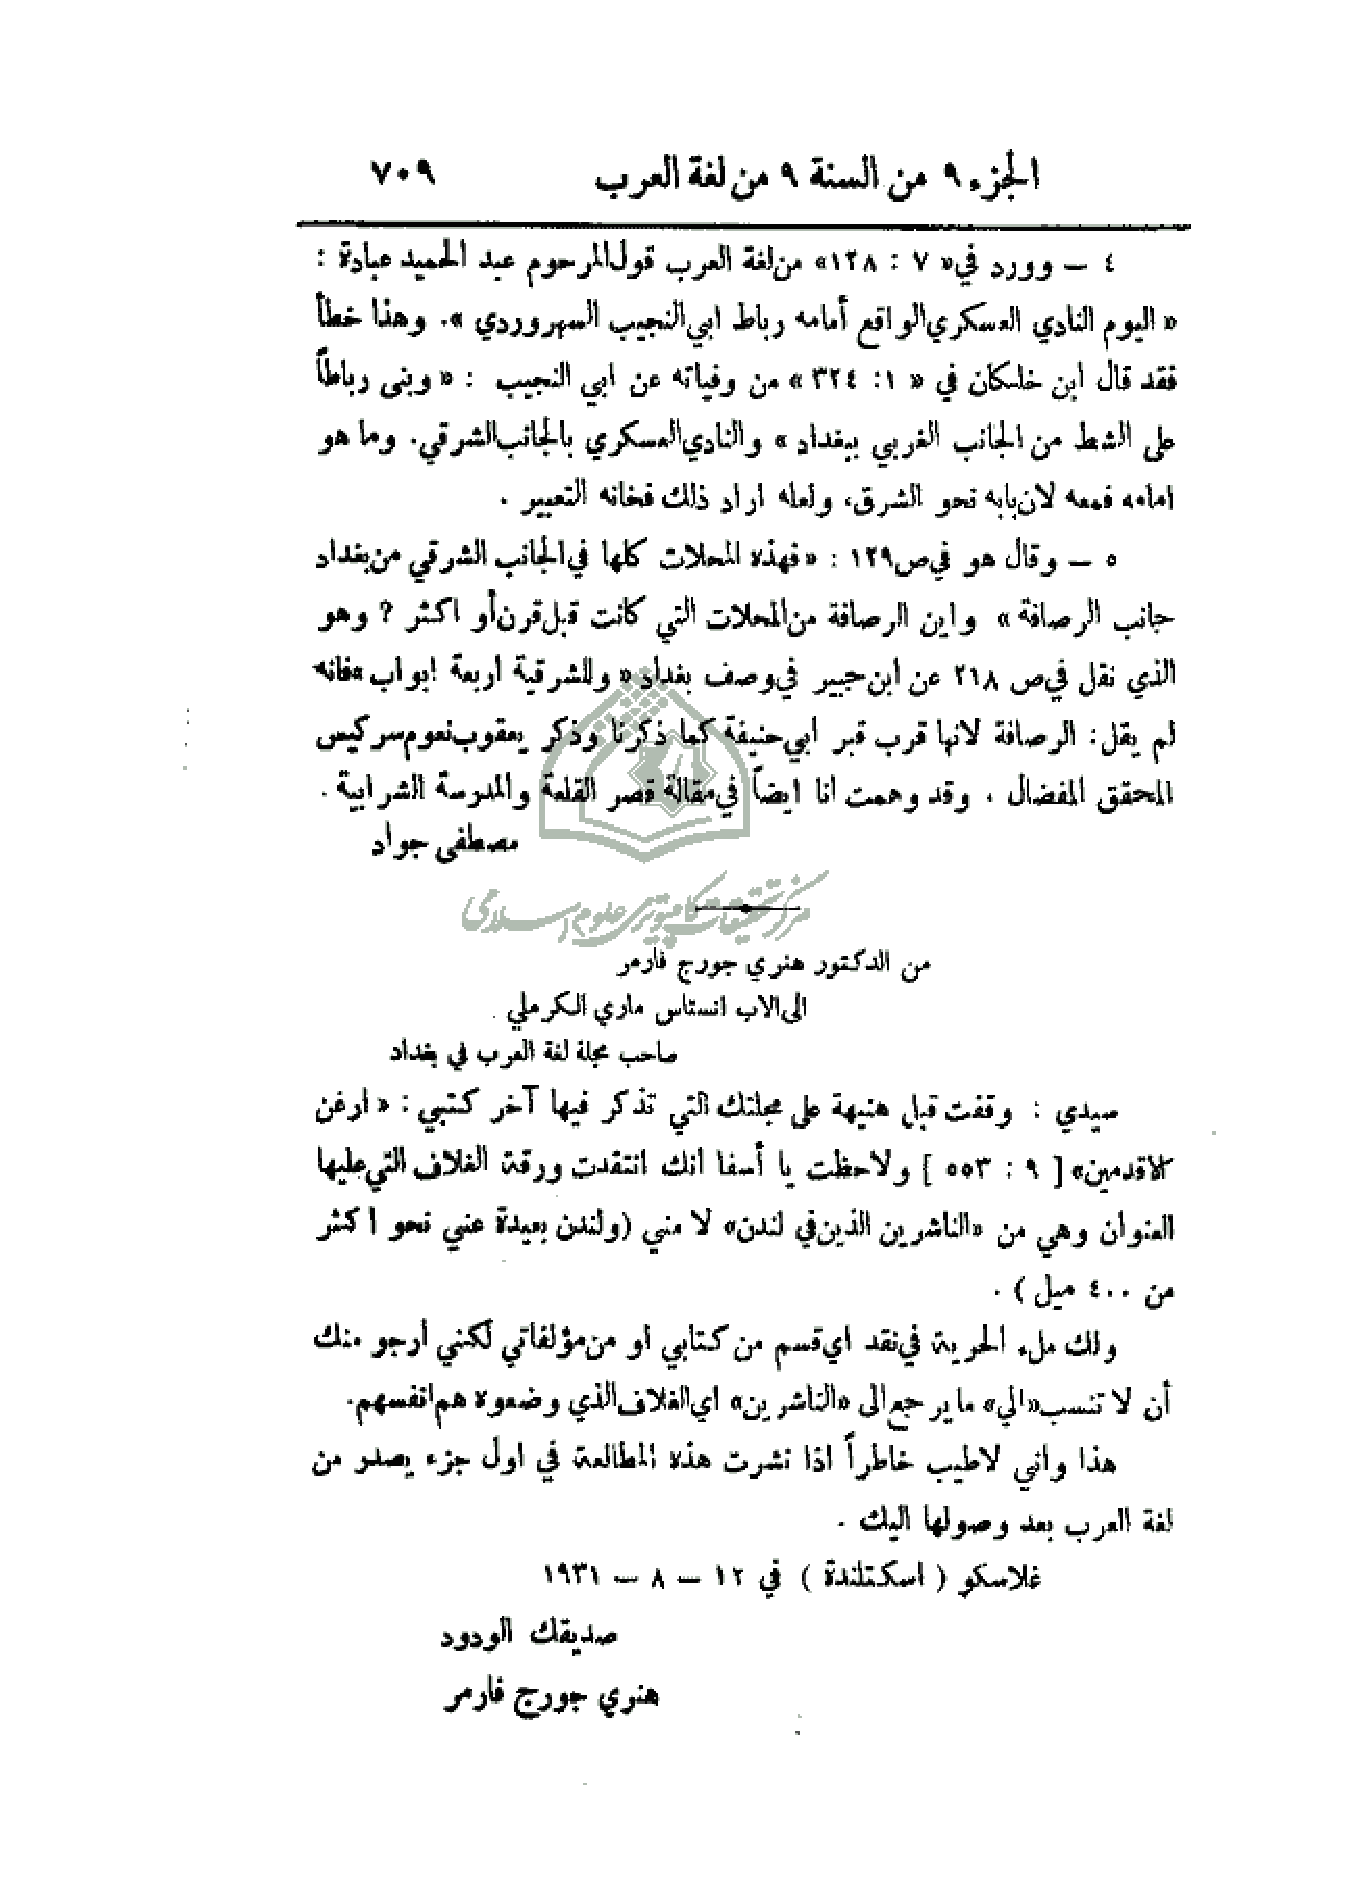 الجزء ٩ من السنة ٩ من لغة العرب ٧٠٩
٤ – وورد في « ٧ : ١٢٨ » من لغة العرب قول المرحوم عبد الحميد عبادة :
« اليوم النادي العسكري الواقع أمامه رباط ابي النجيب السهروردي ». وهذا خطأ
فقد قال ابن خلكان في « ١: ٣٢٤ » من وفياته عن ابي النجيب : « وبنى رباطاً
على الشط من الجانب الغربي ببغداد » والنادي العسكري بالجانب الشرقي. وما هو
امامه فمعه لان بابه نحو الشرق، ولعله اراد ذلك فخانه التعبير .
٥ – وقال هو في ص ١٢٩ : « فهذه المحلات كلها في الجانب الشرقي من بغداد
جانب الرصافة » واين الرصافة من المحلات التي كانت قبل قرن أو اكثر ؟ وهو
الذي نقل في ص ٢١٨ عن ابن جبير في وصف بغداد « وللشرقية اربعة ابواب » فانه
لم يقل: الرصافة لانها قرب قبر ابي حنيفة كما ذكرنا وذكر يعقوب نعوم سركيس
المحقق المفضال . وقد وهمت انا ايضاً في مقالة قصر القلعة والمدرسة الشرابية .
مصطفى جواد
مركز تحقيقات كامپيوترى علوم اسلامى
من الدكتور هنري جورج فارمر
الى الاب انستاس ماري الكرملي
صاحب مجلة لغة العرب في بغداد
سيدي : وقفت قبل هنيهة على مجلتك التي تذكر فيها آخر كتبي : « ارغن
الاقدمين» [ ٩ : ٥٥٣ ] ولاحظت يا أسفا انك انتقدت ورقة الغلاف التي عليها
العنوان وهي من «الناشرين الذين في لندن» لا مني (ولندن بعيدة عني نحو اكثر
من ٤٠٠ ميل ) .
ولك ملء الحرية في نقد اي قسم من كتابي او من مؤلفاتي لكنني أرجو منك
أن لا تنسب «الي» ما يرجع الى «الناشرين» اي الغلاف الذي وضعوه هم انفسهم.
هذا واني لاطيب خاطراً اذا نشرت هذه المطالعة في اول جزء يصدر من
لغة العرب بعد وصولها اليك .
غلاسكو ( اسكتلندة ) في ١٢ – ٨ – ١٩٣١
صديقك الودود
هنري جورج فارمر